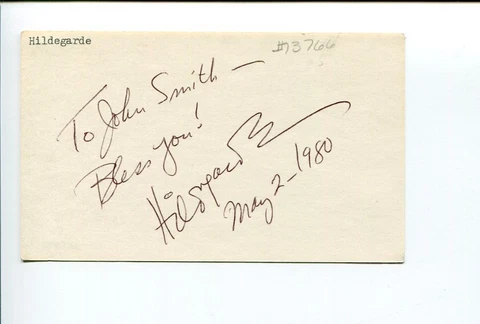 Hildegarde
#73766
To John Smith —
Bless you!
Hildegarde
May 2 - 1980